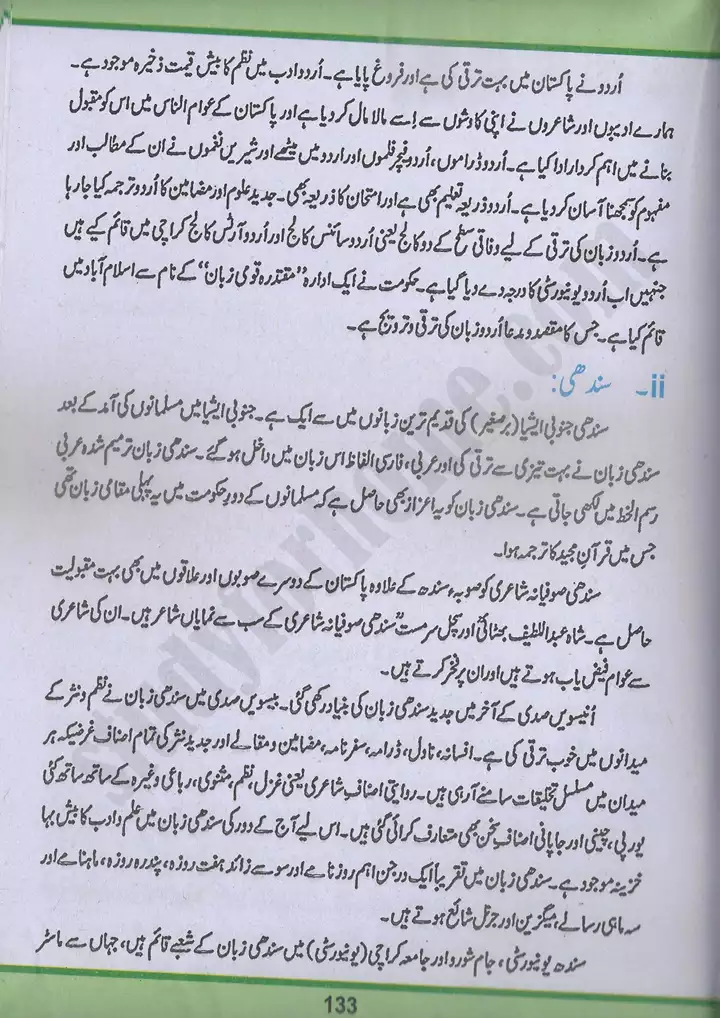 اُردو نے پاکستان میں بہت ترقی کی ہے اور فروغ پایا ہے۔ اُردو ادب میں نظم کا بیش قیمت ذخیرہ موجود ہے۔
ہمارے ادیبوں اور شاعروں نے اپنی کاوشوں سے اِسے مالا مال کر دیا ہے اور پاکستان کے عوام الناس میں اس کو مقبول
بنانے میں اہم کردار ادا کیا ہے۔ اُردو ڈراموں، اُردو فیچر فلموں اور اردو میں میٹھے اور شیریں نغموں نے ان کے مطالب اور
مفہوم کو سمجھنا آسان کر دیا ہے۔ اُردو ذریعہ تعلیم بھی ہے اور امتحان کا ذریعہ بھی۔ جدید علوم اور مضامین کا اُردو ترجمہ کیا جا رہا
ہے۔ اُردو زبان کی ترقی کے لیے وفاقی سطح کے دو کالج یعنی اُردو سائنس کالج اور اُردو آرٹس کالج کراچی میں قائم کیے ہیں
جنہیں اب اُردو یونیورسٹی کا درجہ دے دیا گیا ہے۔ حکومت نے ایک ادارہ ”مقتدرہ قومی زبان“ کے نام سے اسلام آباد میں
قائم کیا ہے۔ جس کا مقصد و مدعا اُردو زبان کی ترقی و ترویج ہے۔
ii۔ سندھی:
سندھی جنوبی ایشیا (برصغیر) کی قدیم ترین زبانوں میں سے ایک ہے۔ جنوبی ایشیا میں مسلمانوں کی آمد کے بعد
سندھی زبان نے بہت تیزی سے ترقی کی اور عربی، فارسی الفاظ اس زبان میں داخل ہو گئے۔ سندھی زبان ترمیم شدہ عربی
رسم الخط میں لکھی جاتی ہے۔ سندھی زبان کو یہ اعزاز بھی حاصل ہے کہ مسلمانوں کے دورِ حکومت میں یہ پہلی مقامی زبان تھی
جس میں قرآن مجید کا ترجمہ ہوا۔
سندھی صوفیانہ شاعری کو صوبہ سندھ کے علاوہ پاکستان کے دوسرے صوبوں اور علاقوں میں بھی بہت مقبولیت
حاصل ہے۔ شاہ عبداللطیف بھٹائیؒ اور سچل سرمستؒ سندھی صوفیانہ شاعری کے سب سے نمایاں شاعر ہیں۔ ان کی شاعری
سے عوام فیض یاب ہوتے ہیں اور ان پر فخر کرتے ہیں۔
اُنیسویں صدی کے آخر میں جدید سندھی زبان کی بنیاد رکھی گئی۔ بیسویں صدی میں سندھی زبان نے نظم و نثر کے
میدانوں میں خوب ترقی کی ہے۔ افسانہ، ناول، ڈرامہ، سفرنامہ، مضامین و مقالے اور جدید نثر کی تمام اصناف غرضیکہ ہر
میدان میں مسلسل تخلیقات سامنے آ رہی ہیں۔ روایتی اصنافِ شاعری یعنی غزل، نظم، مثنوی، رباعی وغیرہ کے ساتھ ساتھ کئی
یورپی، چینی اور جاپانی اصنافِ سخن بھی متعارف کرائی گئی ہیں۔ اس لیے آج کے دور کی سندھی زبان میں علم و ادب کا بیش بہا
خزینہ موجود ہے۔ سندھی زبان میں تقریباً ایک درجن اہم روزنامے اور سو سے زائد ہفت روزہ، پندرہ روزہ، ماہنامے اور
سہ ماہی رسالے، میگزین اور جرنل شائع ہوتے ہیں۔
سندھ یونیورسٹی، جام شورو اور جامعہ کراچی (یونیورسٹی) میں سندھی زبان کے شعبے قائم ہیں، جہاں سے ماسٹر
133
Studyforhome.com